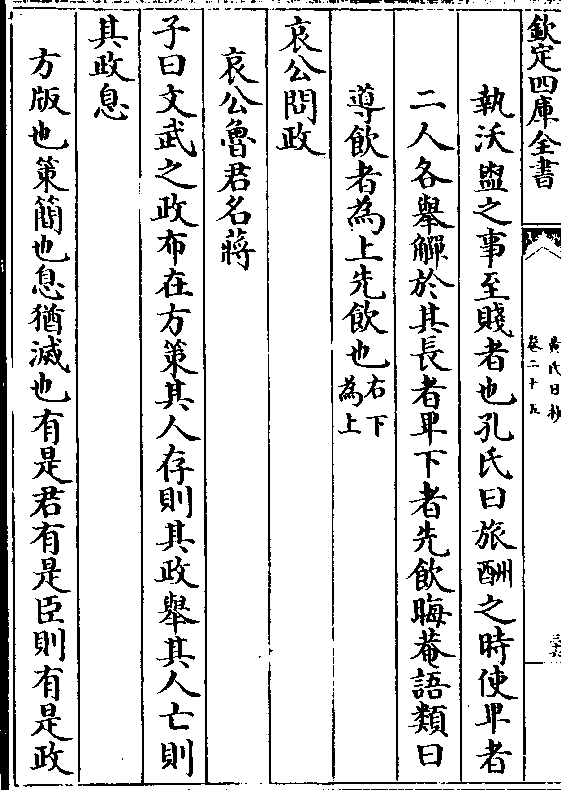 欽定四庫全書
黃氏日抄
卷二十五
執沃盥之事至賤者也孔氏曰旅酬之時使卑者
二人各舉觶於其長者卑下者先飲晦菴語類曰
導飲者為上先飲也右下
為上
哀公問政
哀公魯君名蔣
子曰文武之政布在方策其人存則其政舉其人亡則
其政息
方版也策簡也息猶滅也有是君有是臣則有是政